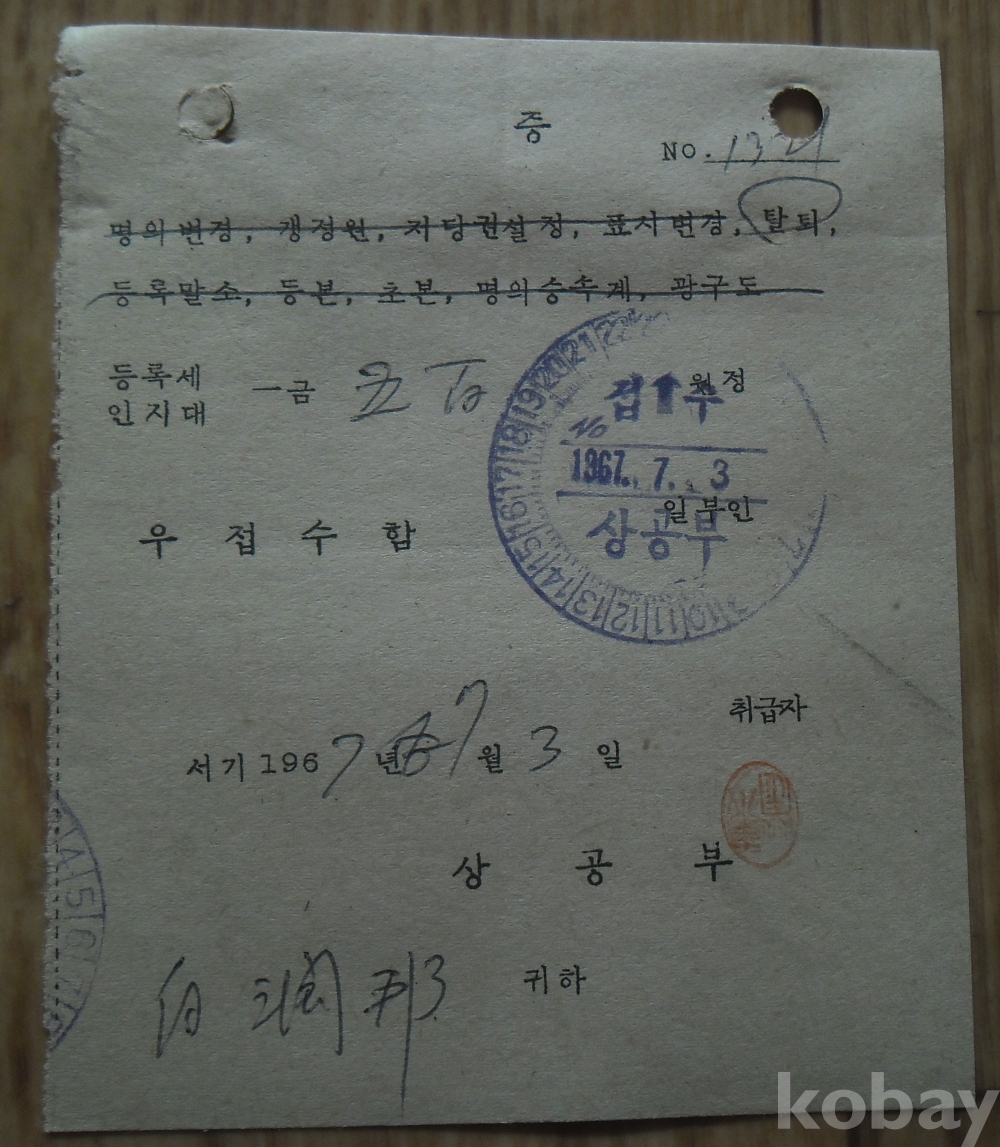 증
NO. 1321
명의변경, 갱정원, 저당권설정, 표시변경, 탈퇴,
등록말소, 등본, 초본, 명의승속계, 광구도
등록세
인지대 一금 五百 원정
접수
No
1967. 7. 3
상공부
일부인
우 접 수 함
취급자
서기 1967년 7월 3일
상 공 부
白 潤 邦 귀하
kobay